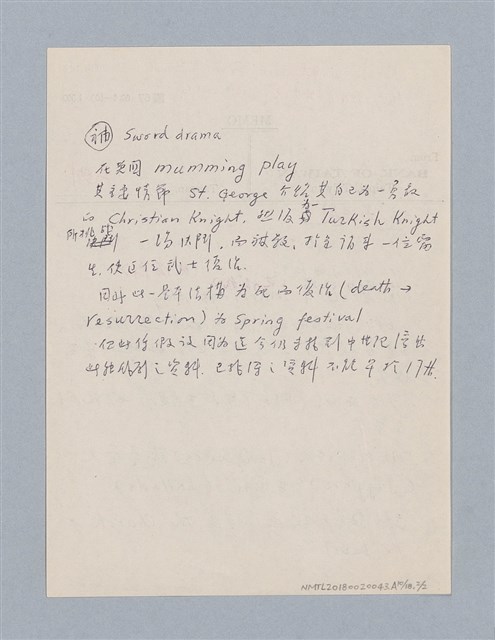 補 Sword drama
在英國 mumming play
其主要情節 St. George 介紹其自己為一勇敢
的 Christian Knight. 然後為一 Turkish Knight
所挑戰 一場決鬥，而被殺，於是請來一位醫
生，使這位武士復活.
因此此一基本結構為死而復活 (death →
resurrection) 為 Spring festival
但此係假設因為迄今仍未找到中世紀演出
此種戲劇之資料. 已找得之資料不能早於17世.
NMTL20180020043.A 2/2